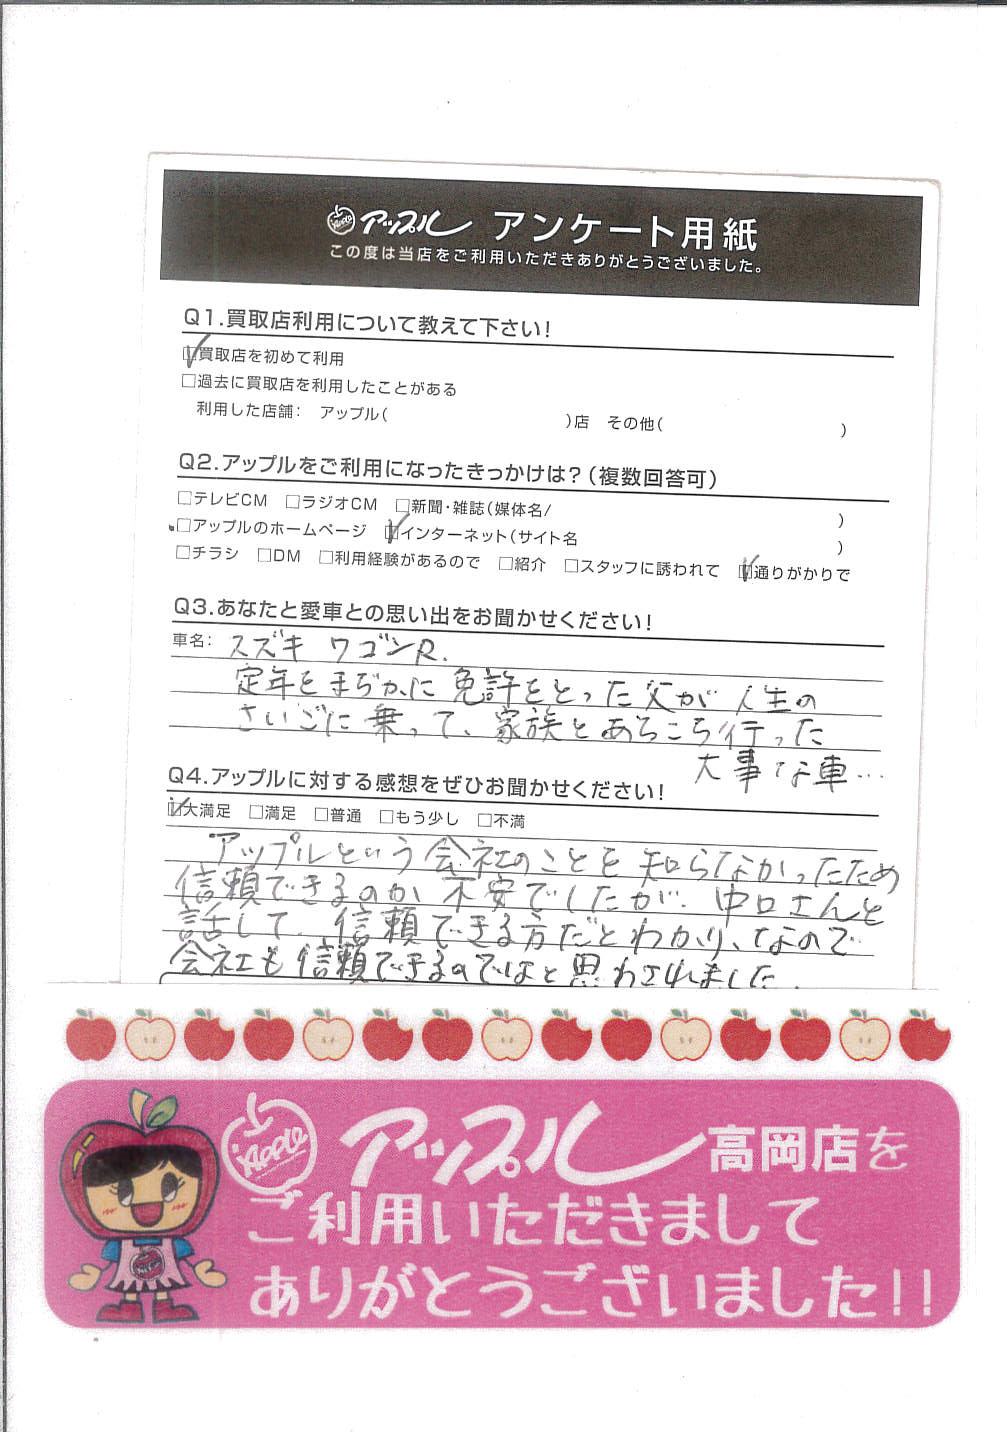 APPLE アップル アンケート用紙
この度は当店をご利用いただきありがとうございました。
Q1.買取店利用について教えて下さい!
☑買取店を初めて利用
□過去に買取店を利用したことがある
利用した店舗: アップル( )店 その他( )
Q2.アップルをご利用になったきっかけは?(複数回答可)
□テレビCM □ラジオCM □新聞・雑誌(媒体名/ )
□アップルのホームページ ☑インターネット(サイト名 )
□チラシ □DM □利用経験があるので □紹介 □スタッフに誘われて ☑通りがかりで
Q3.あなたと愛車との思い出をお聞かせください!
車名: スズキ ワゴンR.
定年をまぢかに免許をとった父が人生の
さいごに乗って、家族とあちこち行った
大事な車…
Q4.アップルに対する感想をぜひお聞かせください!
☑大満足 □満足 □普通 □もう少し □不満
アップルという会社のことを知らなかったため
信頼できるのか不安でしたが、中口さんと
話して、信頼できる方だとわかり、なので
会社も信頼できるのではと思わされました.
APPLE アップル 高岡店を
ご利用いただきまして
ありがとうございました!!